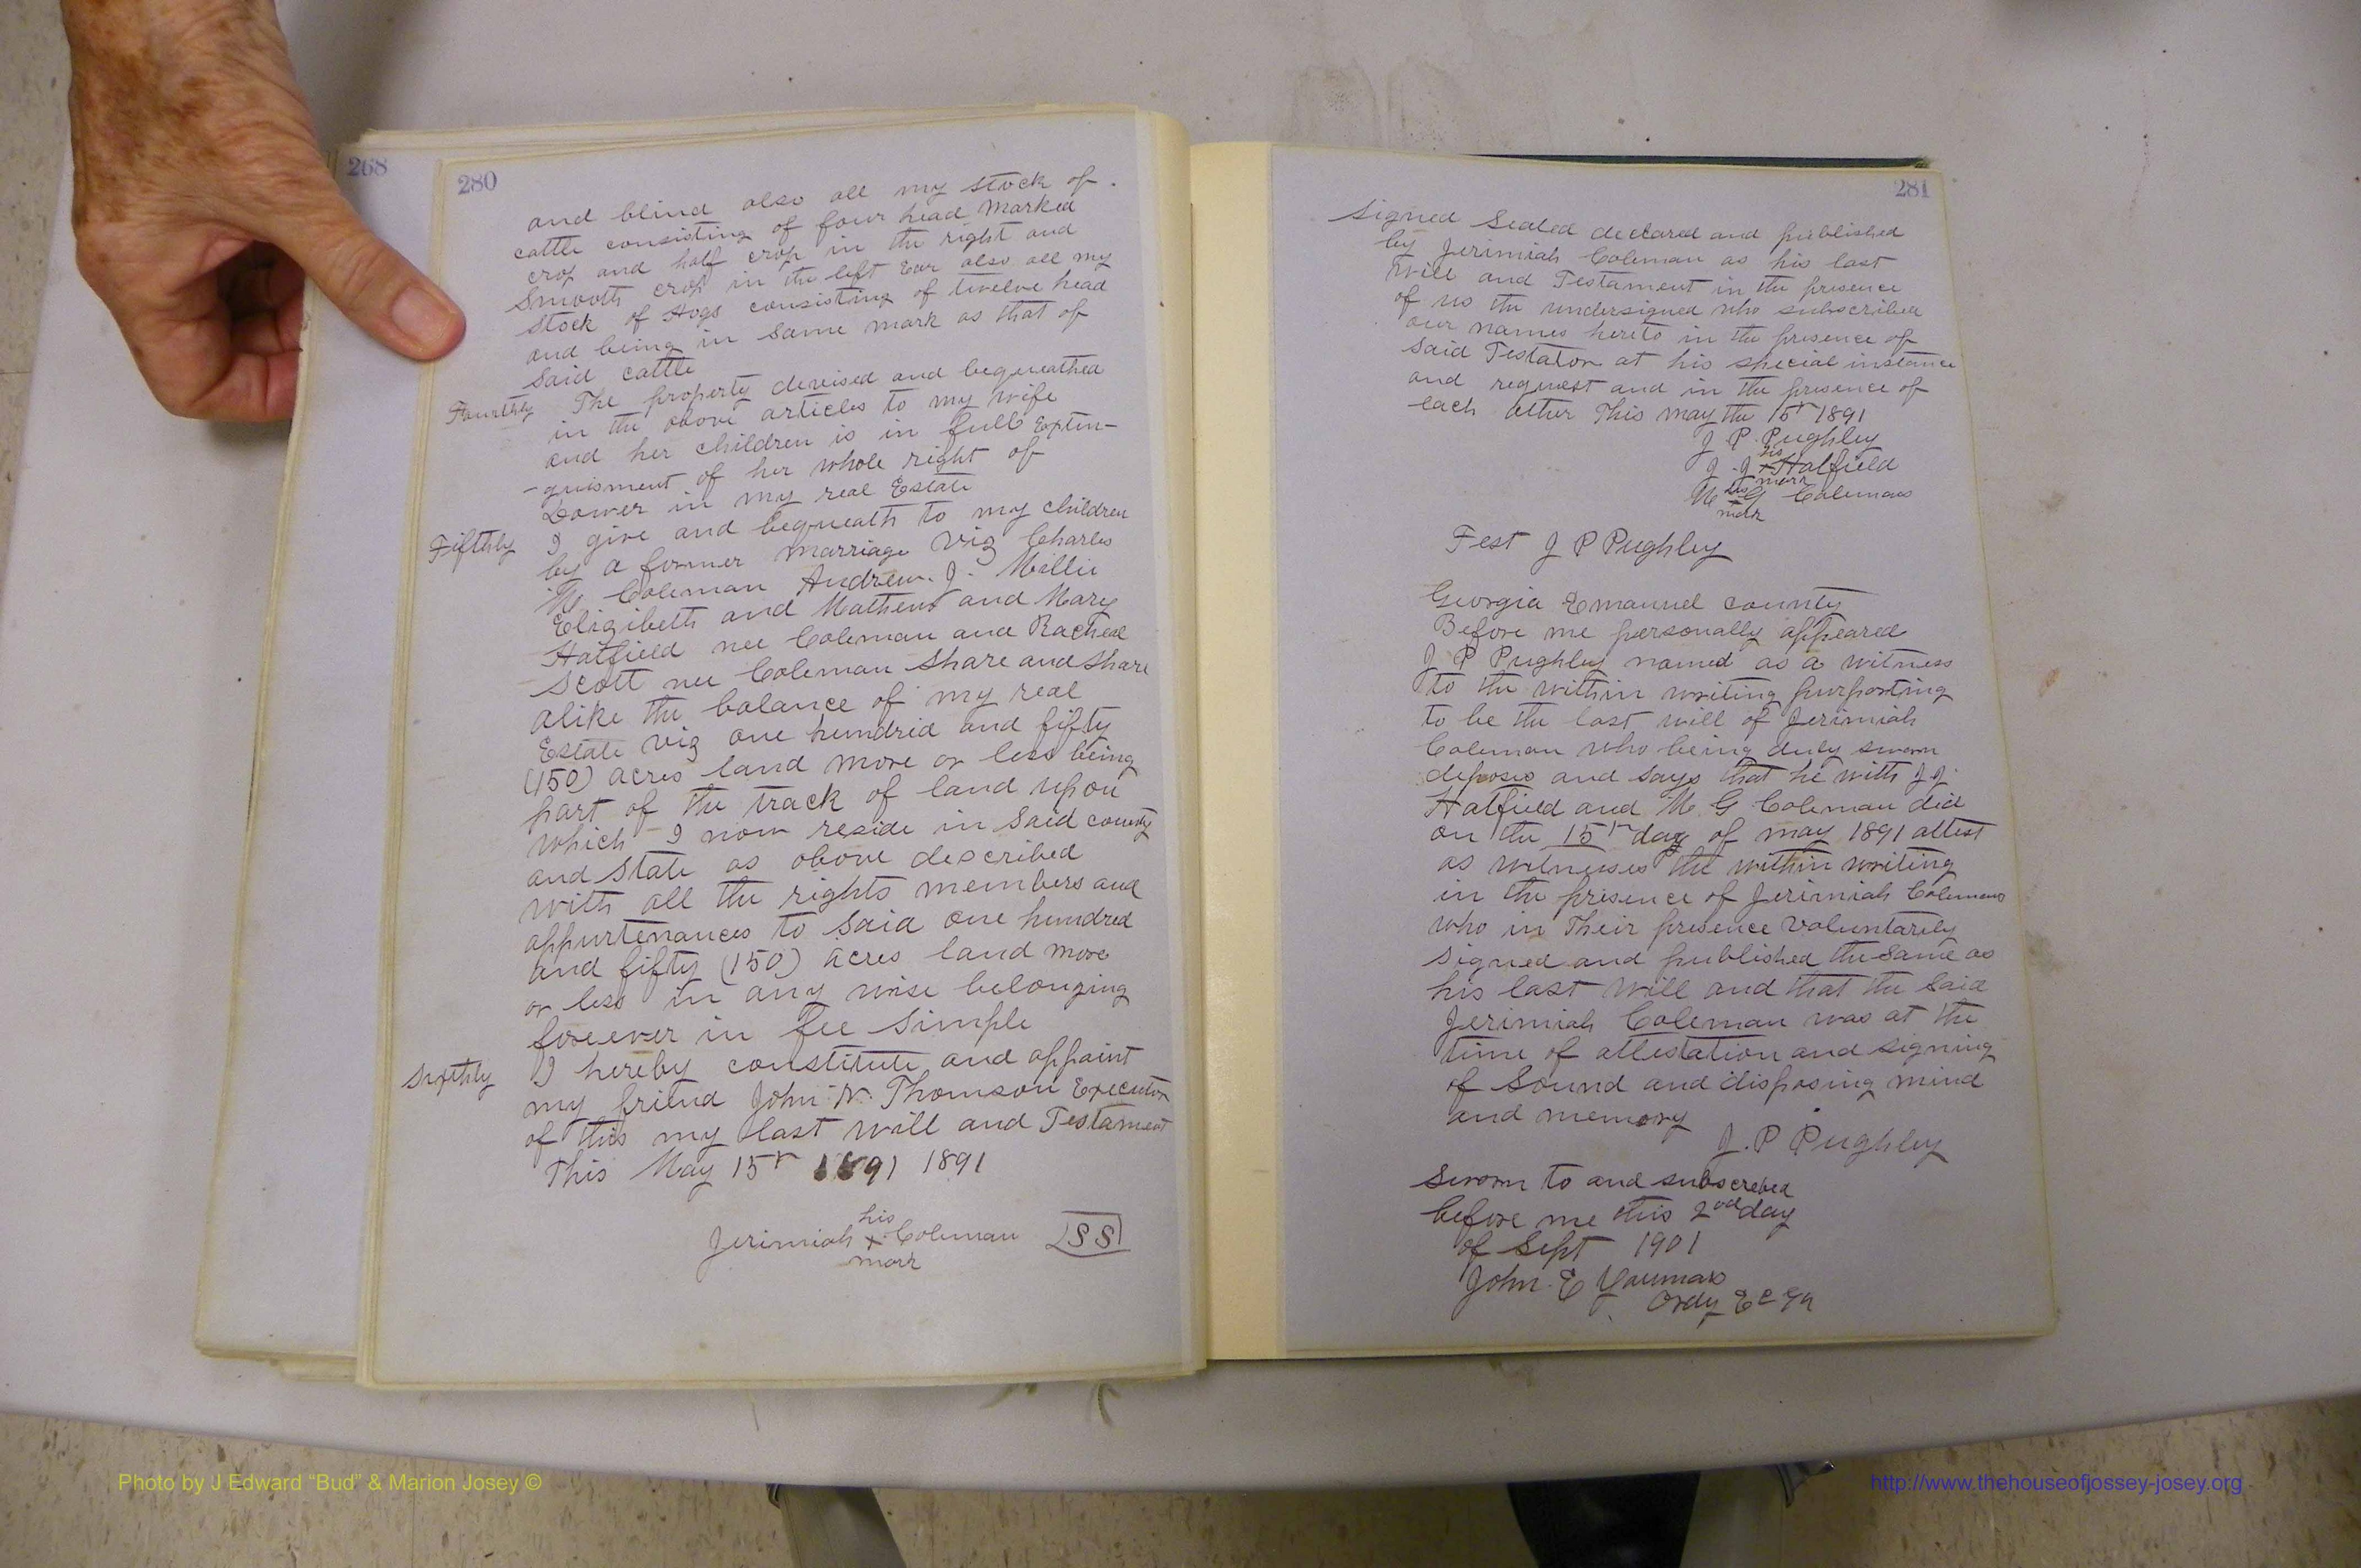 268
280
and blind also all my stock of
cattle consisting of four head marked
crop and half crop in the right and
Smooth crop in the left Ear also all my
stock of Hogs consisting of twelve head
and being in same mark as that of
said cattle
Fourthly The property devised and bequeathed
in the above articles to my wife
and her children is in full Extin-
-guisment of her whole right of
Dower in my real Estate
Fifthly I give and bequeath to my children
by a former marriage viz Charles
Coleman Andrew. J. Millie
Elizibeth and Mathew and Mary
Hatfield nee Coleman and Racheal
Scott nee Coleman Share and Share
alike the balance of my real
Estate viz one hundrid and fifty
(150) acres land more or less being
part of the track of land upon
which I now reside in said county
and State as above described
with all the rights members and
appurtenances to said one hundred
and fifty (150) acres land more
or less in any wise belonging
forever in fee simple
Sixthly I hereby constitute and appoint
my friend John N. Thomson Executor
of this my last will and Testament
This May 15th 1891 1891
Jerimiah his x mark Coleman SS
281
Signed Sealed declared and published
by Jerimiah Coleman as his last
Will and Testament in the presence
of us the undersigned who subscribed
our names hereto in the presence of
said Testator at his special instance
and request and in the presence of
each other This may the 15th 1891
J. P. Pughley
J. J. his x mark Hatfield
M his x mark G Coleman
Test J P Pughley
Georgia Emanuel county
Before me personally appeared
J P Pughley named as a witness
to the within writing purporting
to be the last will of Jerimiah
Coleman who being duly sworn
deposes and says that he with J J.
Hatfield and M. G Coleman did
on the 15th day of may 1891 attest
as witnesses the within writing
in the presence of Jerimiah Coleman
who in Their presence voluntarily
signed and published the same as
his last will and that the said
Jerimiah Coleman was at the
time of attestation and signing
of Sound and disposing mind
and memory
J. P Pughley
Sworn to and subscrebed
before me this 2nd day
of Sept 1901
John. E Youmans
Ordy E C Ga
Photo by J Edward “Bud” & Marion Josey ©
http://www.thehouseofjossey-josey.org